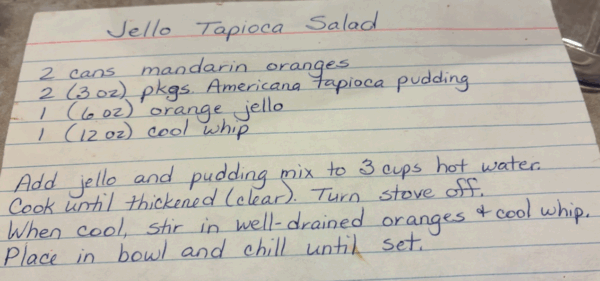 Jello Tapioca Salad
2 cans mandarin oranges
2 (3 oz) pkgs. Americana tapioca pudding
1 (6 oz) orange jello
1 (12 oz) cool whip
Add jello and pudding mix to 3 cups hot water.
Cook until thickened (clear). Turn stove off.
When cool, stir in well-drained oranges & cool whip.
Place in bowl and chill until set.